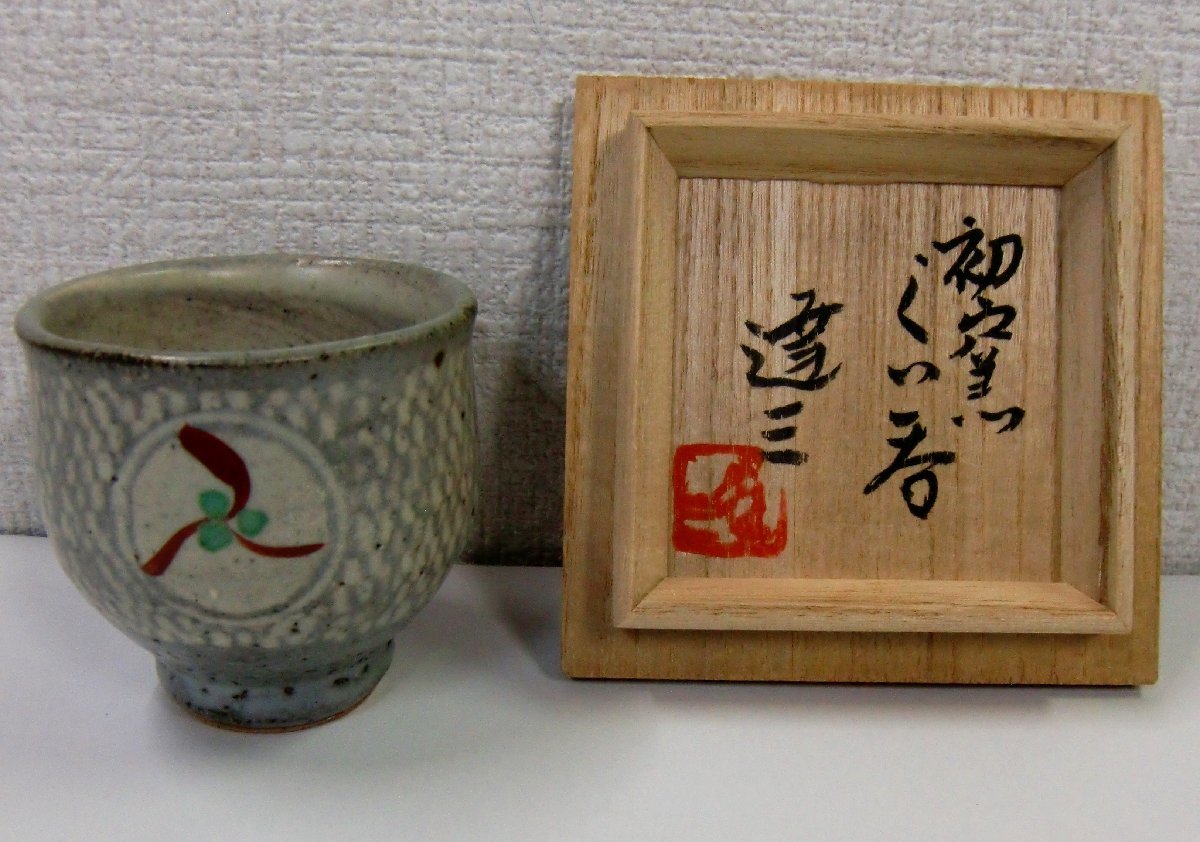 初窯
ぐい呑
達三